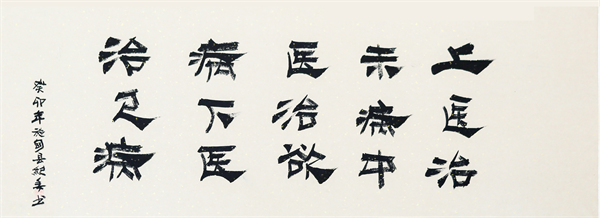 上医治
未病中
医治欲
病下医
治已病
癸卯年国县书